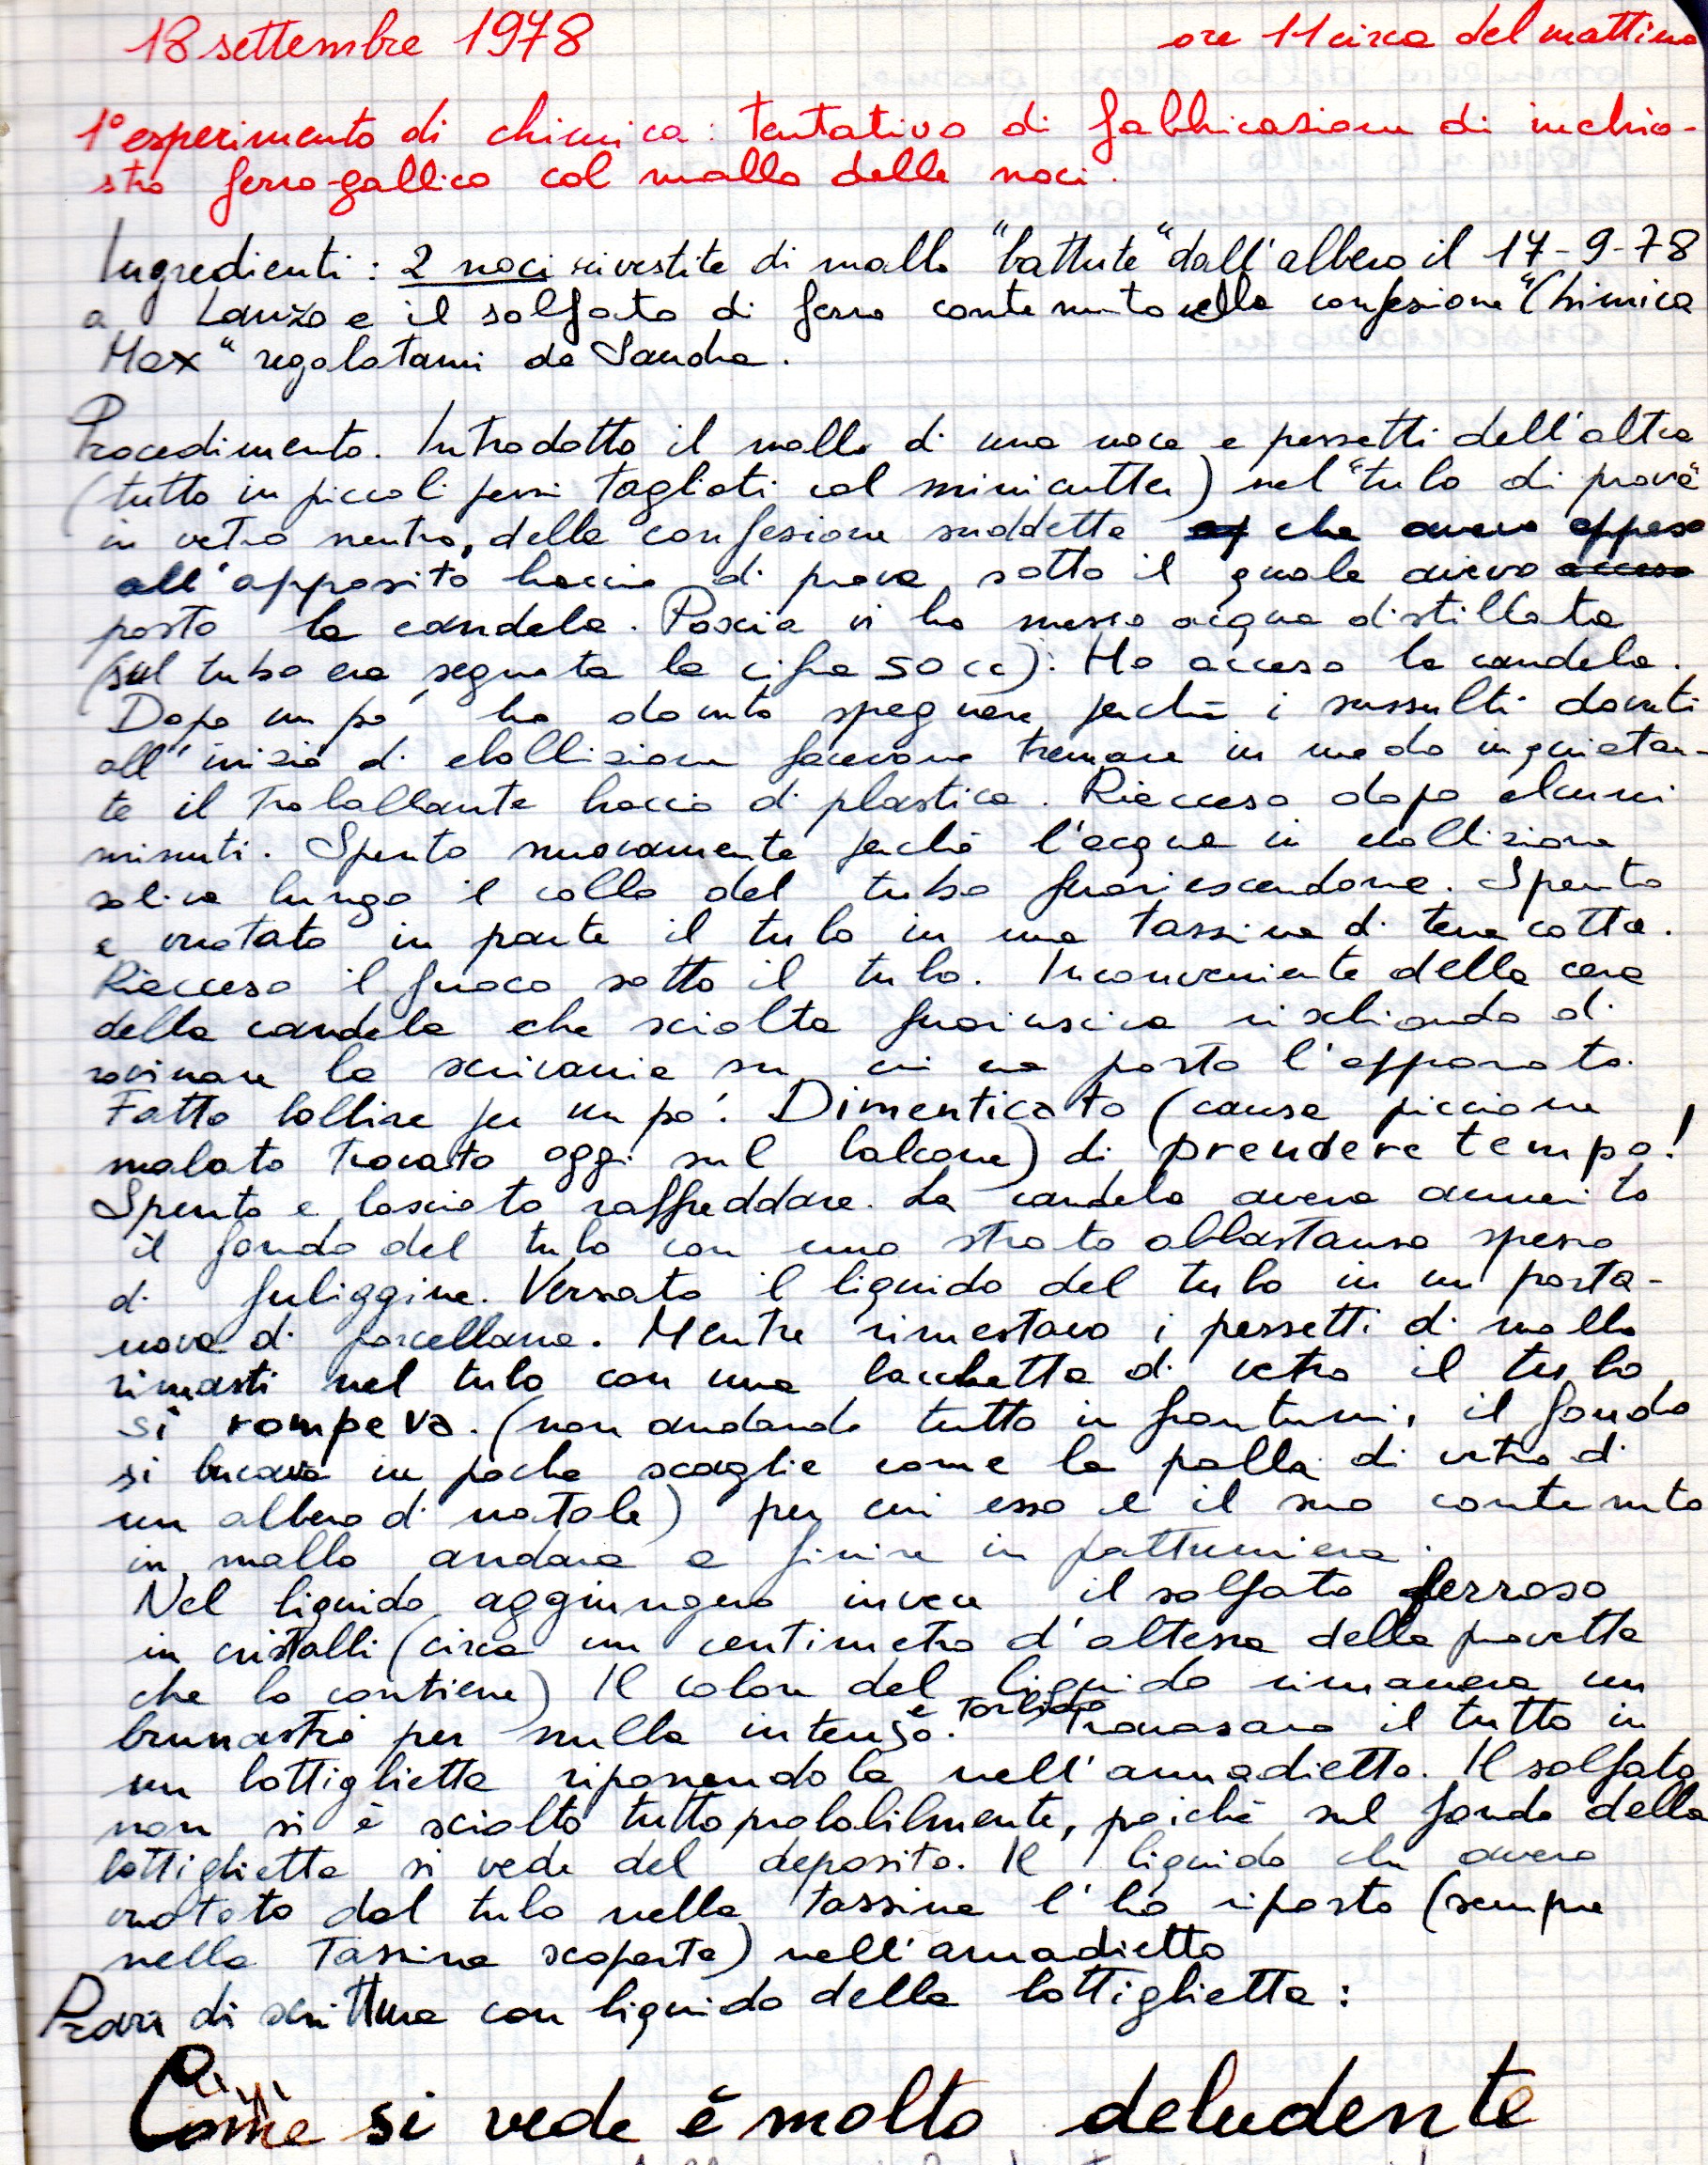 18 settembre 1978 ore 11 circa del mattino
1° esperimento di chimica: tentativo di fabbricazione di inchio-
stro ferro-gallico col mallo delle noci.
Ingredienti: 2 noci rivestite di mallo "battute" dall'albero il 17-9-78
a Lanzo e il solfato di ferro contenuto nella confezione "Chimica
Max" regalatami da Sandra.
Procedimento. Introdotto il mallo di una noce e pezzetti dell'altra
(tutto in piccoli pezzi tagliati col minicutter) nel "tubo di prova"
in vetro neutro, della confezione suddetta che avevo appeso
all'apposito braccio di prova, sotto il quale avevo acceso
posto la candela. Poscia vi ho messo acqua distillata
(sul tubo era segnata la cifra 50 cc). Ho acceso la candela.
Dopo un po' ho dovuto spegnere perché i sussulti dovuti
all'inizio di ebollizione facevano tremare in modo inquietan-
te il traballante braccio di plastica. Riacceso dopo alcuni
minuti. Spento nuovamente perché l'acqua in ebollizione
saliva lungo il collo del tubo fuoriescendone. Spento
e vuotato in parte il tubo in una tassina di terra cotta.
Riacceso il fuoco sotto il tubo. Inconveniente della cera
della candela che sciolta fuoriusciva rischiando di
rovinare la scrivania su cui era posto l'apparato.
Fatto bollire per un po'. Dimenticato (causa piccione
malato trovato oggi sul balcone) di prendere tempo!
Spento e lasciato raffreddare. La candela aveva annerito
il fondo del tubo con uno strato abbastanza spesso
di fuliggine. Versato il liquido del tubo in un porta-
uova di porcellana. Mentre rimestavo i pezzetti di mallo
rimasti nel tubo con una bacchetta di vetro il tubo
si rompeva. (non andando tutto in frantumi, il fondo
si bucava in poche scaglie come la palla di vetro di
un albero di natale) per cui esso e il suo contenuto
in mallo andava a finire in pattumiera.
Nel liquido aggiungevo invece il solfato ferroso
in cristalli (circa un centimetro d'altezza della provetta
che lo contiene) Il colore del liquido rimaneva un
brunastro per nulla intenso e torbido. Travasavo il tutto in
un bottiglietta riponendola nell'armadietto. Il solfato
non si è sciolto tutto probabilmente, poiché sul fondo della
bottiglietta si vede del deposito. Il liquido che avevo
vuotato dal tubo nella tassina l'ho riposto (sempre
nella tassina scoperta) nell'armadietto
Prova di scrittura con liquido della bottiglietta:
Come si vede è molto deludente